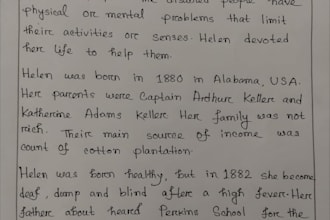 disabled people have
physical or mental problems that limit
their activities or senses. Helen devoted
her life to help them.
Helen was born in 1880 in Alabama, USA.
Her parents were Captain Ardhur Keller and
Katherine Adams Keller. Her family was not
rich. Their main source of income was
count of cotton plantation.
Helen was born healthy, but in 1882 she become
deaf, dump and blind after a high fever. Her
father about heard Perkins School for the